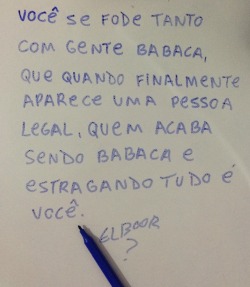 VOCÊ SE FODE TANTO
COM GENTE BABACA,
QUE QUANDO FINALMENTE
APARECE UMA PESSOA
LEGAL, QUEM ACABA
SENDO BABACA E
ESTRAGANDO TUDO É
VOCÊ.
ELBOOR
?